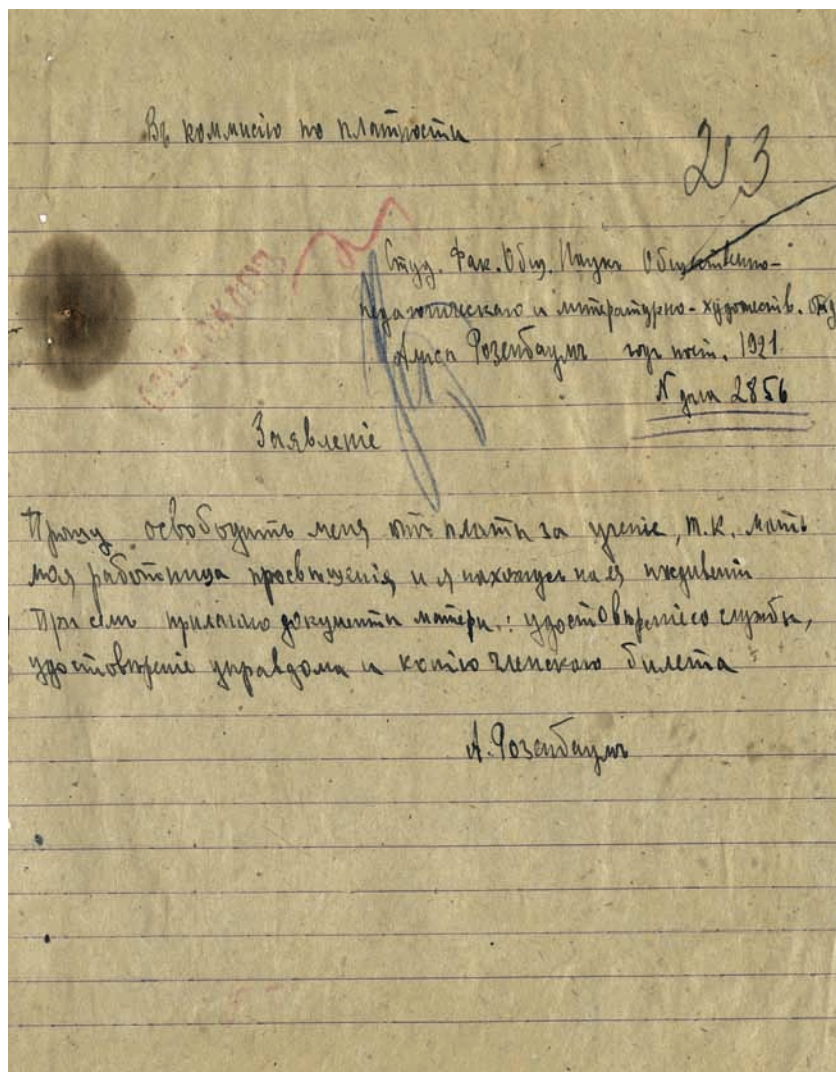 Въ коммисію по платности
23
Студ. Фак. Общ. Наукъ Общественно-
педагогическаго и литературно-художеств. отд.
Алиса Розенбаумъ годъ пост. 1921.
N дѣла 2856
Заявленіе
Прошу освободить меня отъ платы за ученіе, т.к. мать
моя работница просвѣщенія и я нахожусь на ея иждивеніи
При семъ прилагаю документы матери: удостовѣреніе со службы,
удостовѣреніе управдома и копію членскаго билета
А. Розенбаумъ